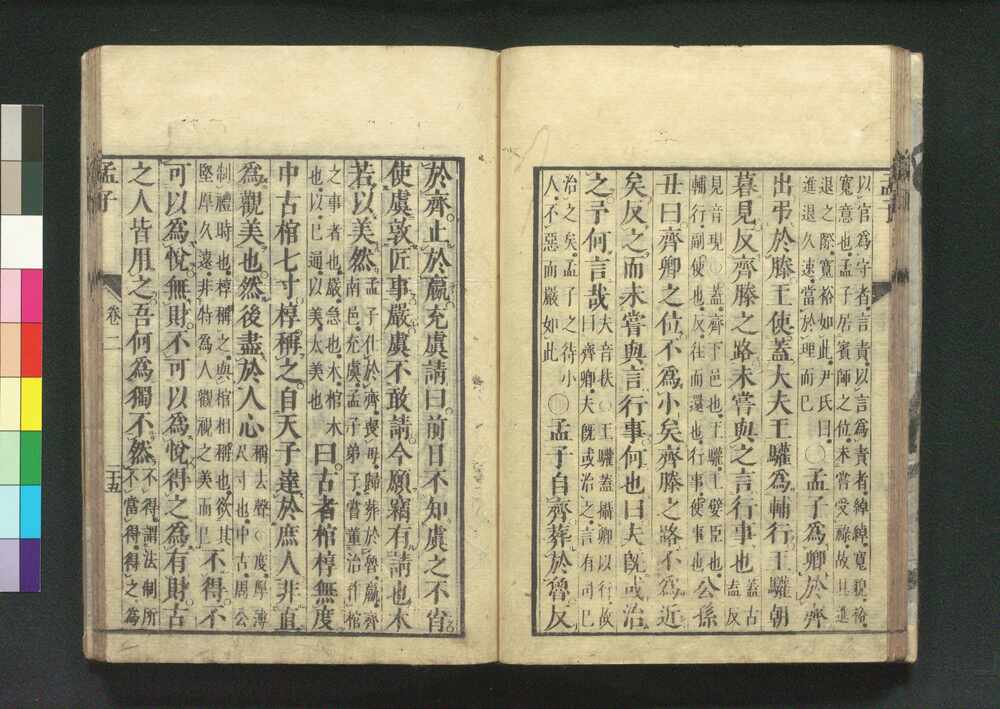 以官爲守者言責以言爲責者綽綽寬貌裕
寬意也孟子居賓師之位未嘗受祿故其進
退之際寬裕如此尹氏曰
進退久速當於理而已
○孟子爲卿於齊
出弔於滕王使蓋大夫王驩爲輔行王驩朝
暮見反齊滕之路未嘗與之言行事也
蓋古盍反
見音現○蓋齊下邑也王驩王嬖臣也
輔行副使也反往而還也行事使事也
公孫
丑曰齊卿之位不爲小矣齊滕之路不爲近
矣反之而未嘗與言行事何也曰夫旣或治
之予何言哉
夫音扶○王驩蓋攝卿以行故
曰齊卿夫旣或治之言有司已
治之矣孟子之待小
人不惡而嚴如此
○孟子自齊葬於魯反
於齊止於嬴充虞請曰前日不知虞之不肖
使虞敦匠事嚴虞不敢請今願竊有請也木
若以美然
孟子仕於齊喪母歸葬於魯嬴齊
南邑充虞孟子弟子嘗董治作棺
之事者也嚴急也木棺木
也以已通以美太美也
曰古者棺椁無度
中古棺七寸椁稱之自天子達於庶人非直
爲觀美也然後盡於人心
稱去聲○度厚薄
尺寸也中古周公
制禮時也椁稱之與棺相稱也欲其
堅厚久遠非特爲人觀視之美而已
不得不
可以爲悅無財不可以爲悅得之爲有財古
之人皆用之吾何爲獨不然
不得謂法制所
不當得得之爲
孟子
卷二
二十五